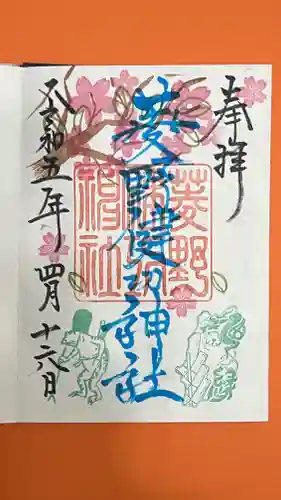 奉拝
菱野健功神社
菱野
神社
令和五年 四月十六日